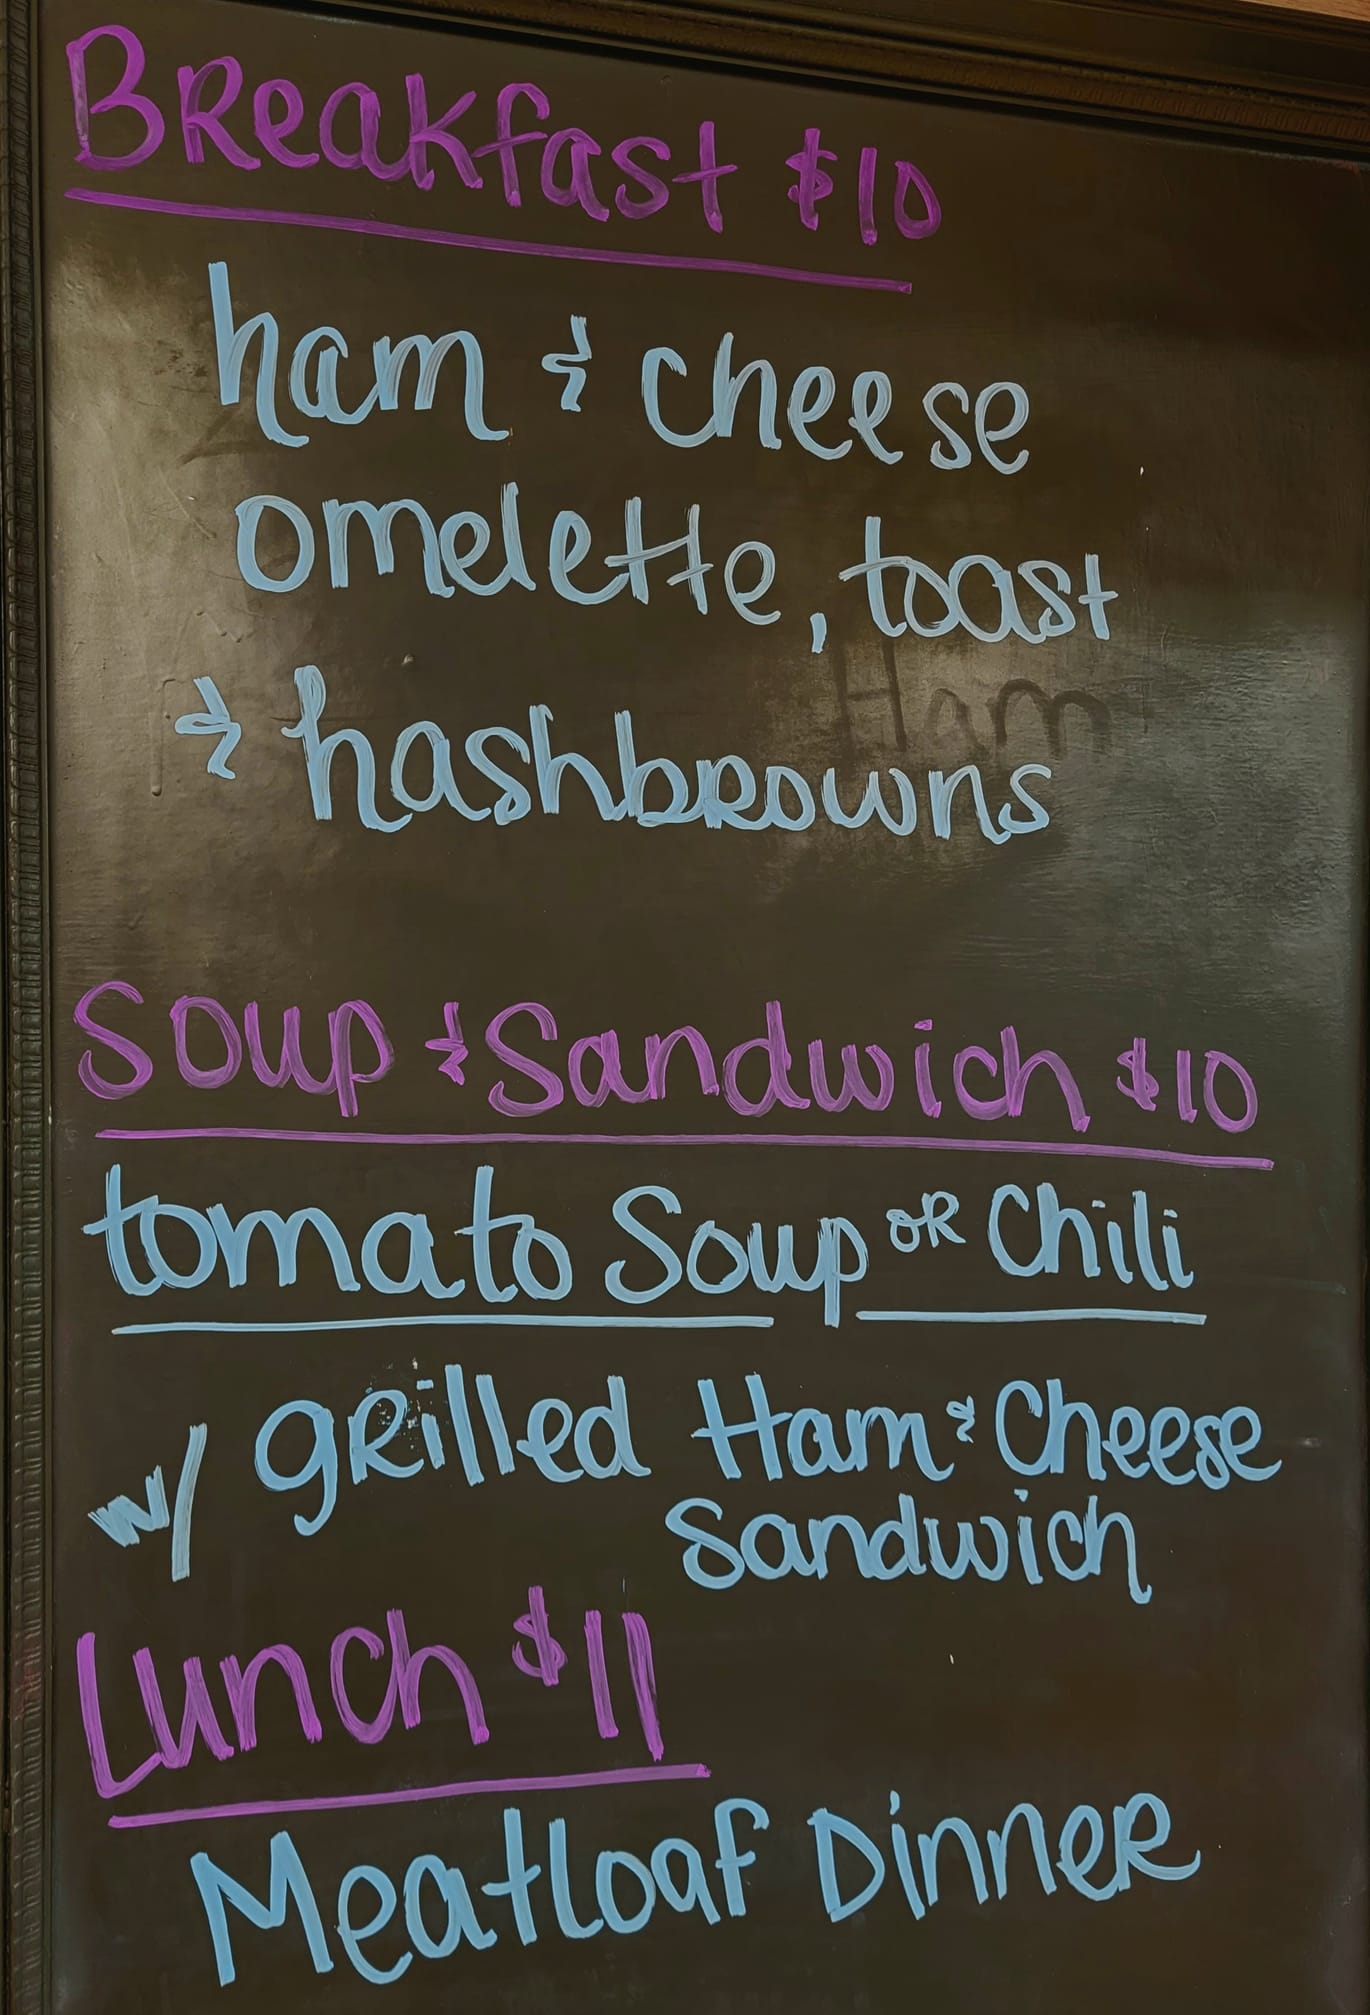 Breakfast $10
ham & cheese
omelette, toast
Ham
& hashbrowns
Soup & Sandwich $10
tomato Soup OR Chili
w/ grilled Ham & Cheese
Sandwich
Lunch $11
Meatloaf Dinner